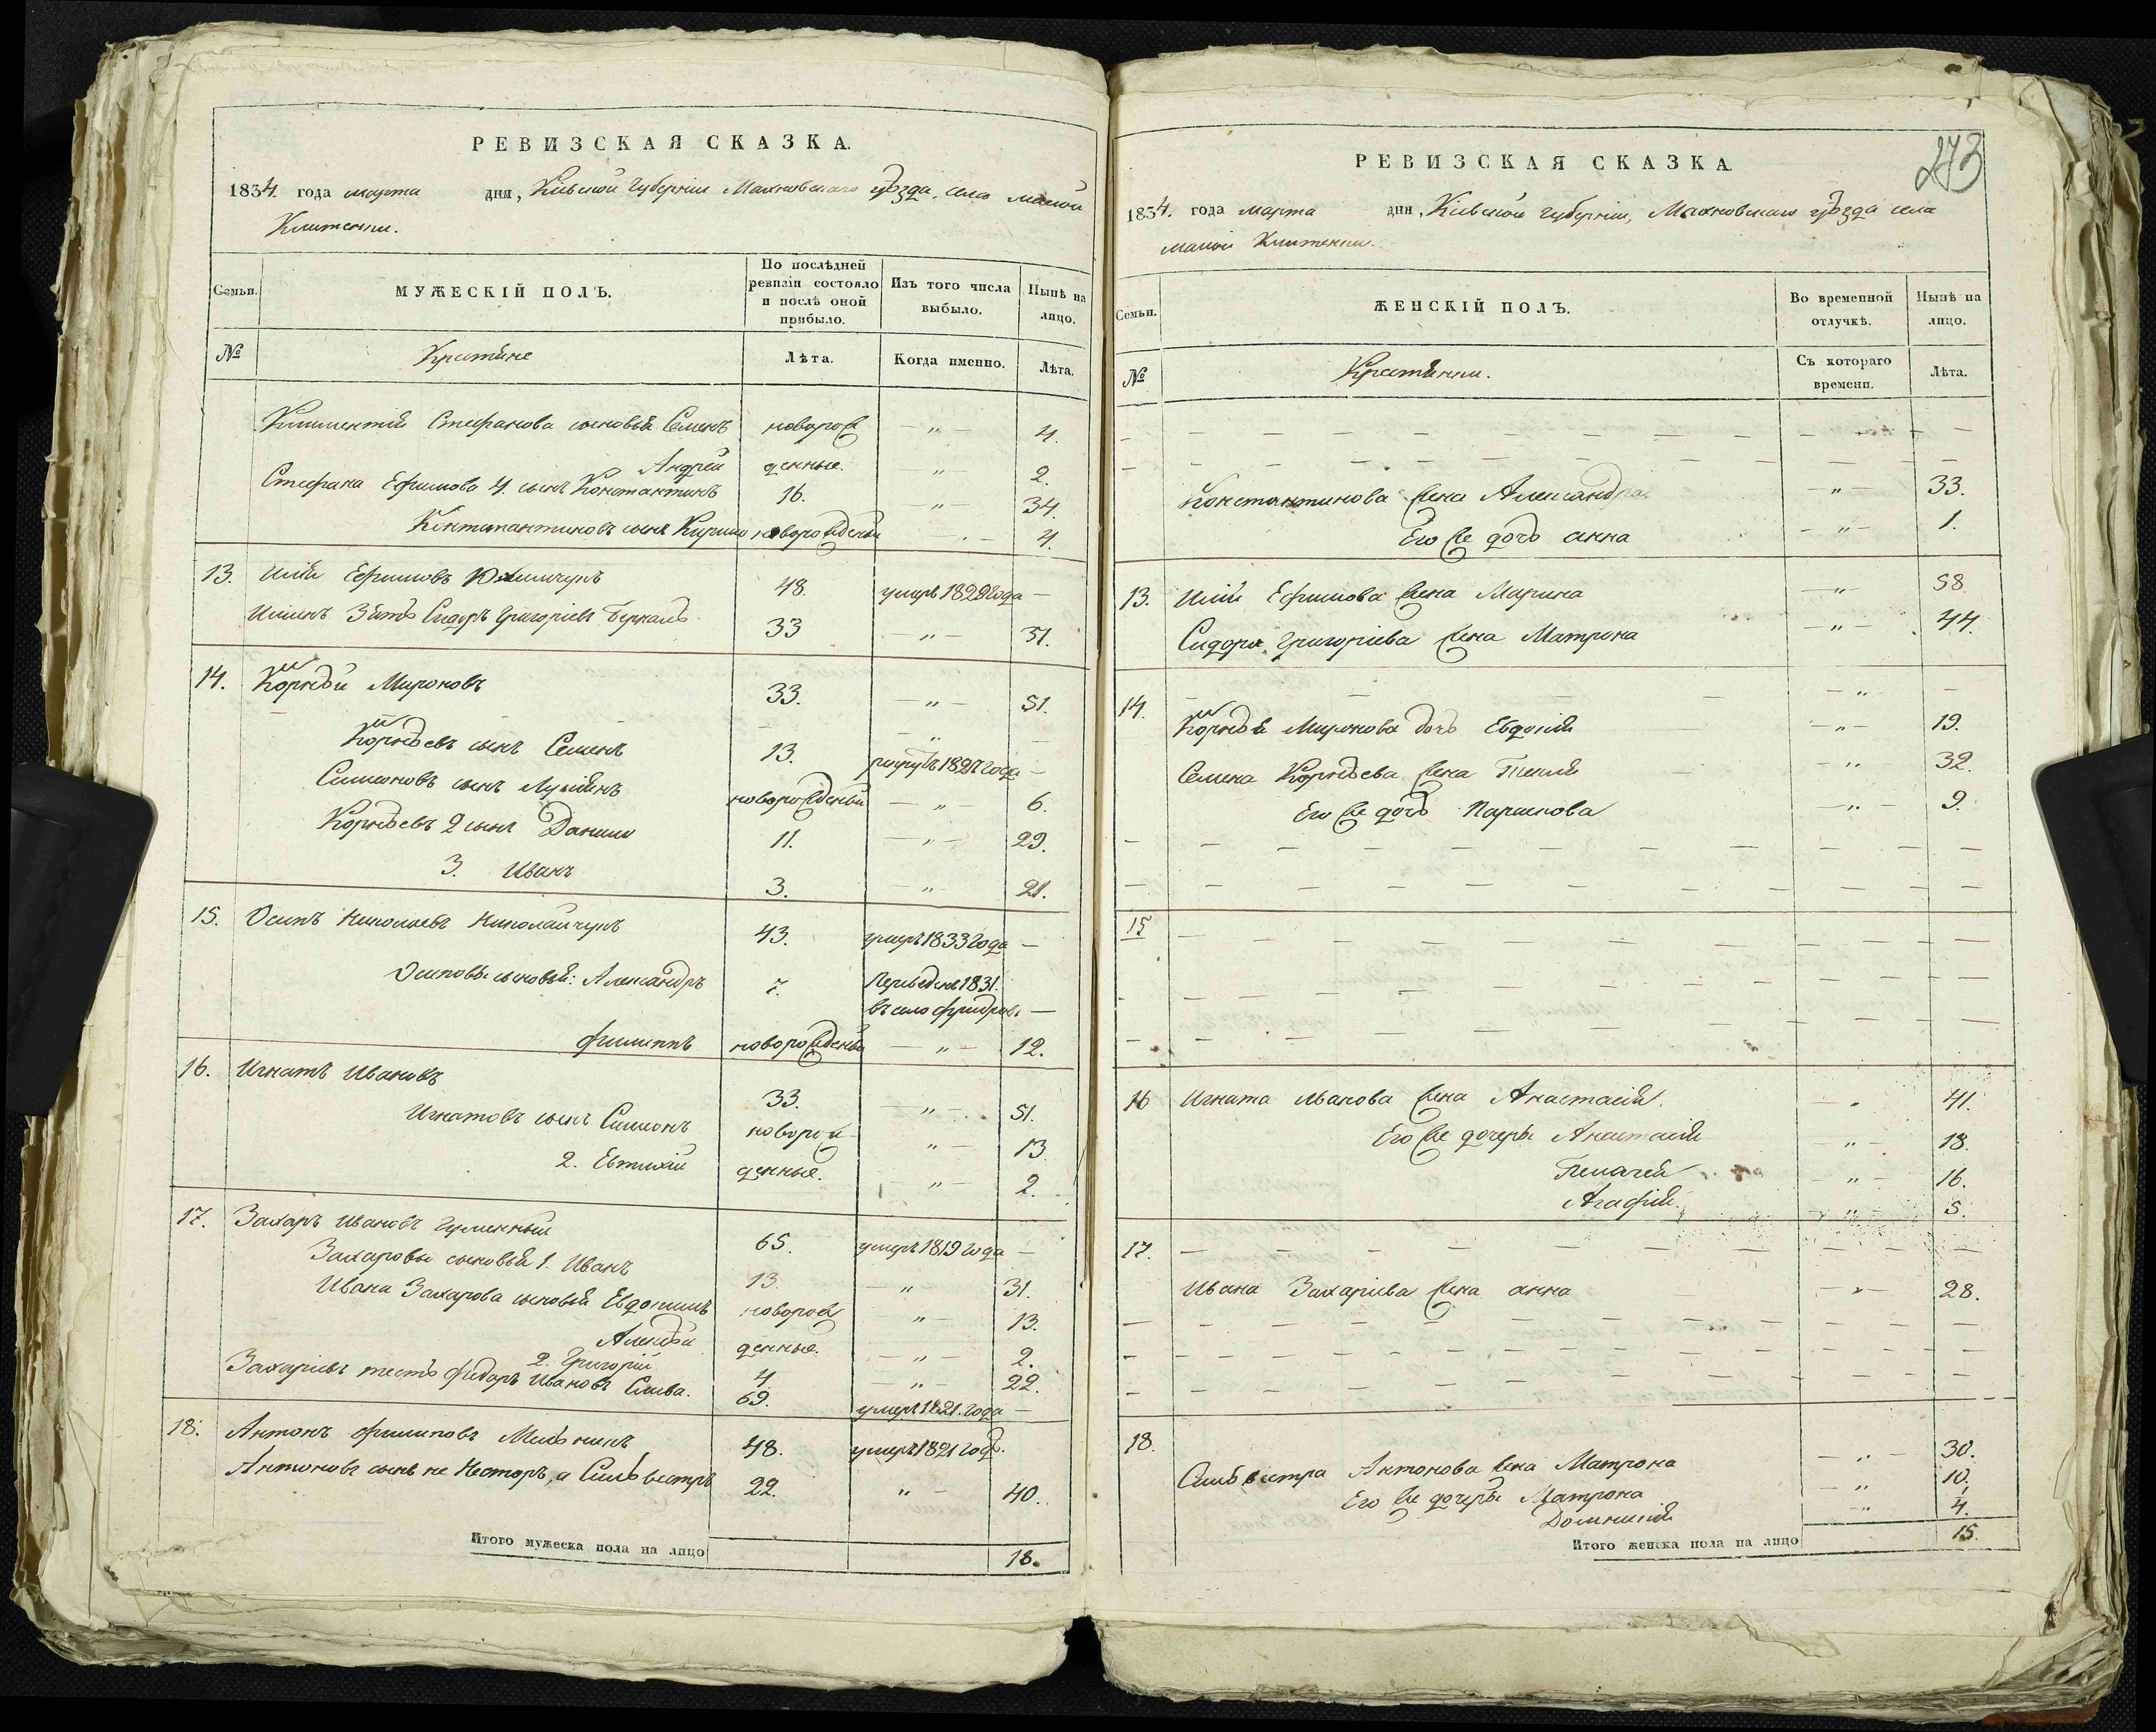 РЕВИЗСКАЯ СКАЗКА.
1834. года марта дня, Кіевской Губерніи Махновскаго уѣзда, села малой
Клитенки.
Семьи. МУЖЕСКІЙ ПОЛЪ. По послѣдней ревизіи состояло и послѣ оной прибыло. Изъ того числа выбыло. Нынѣ на лицо.
№ Крестьяне Лѣта. Когда именно. Лѣта.
Климентія Стефанова сыновья Семенъ новорож „ 4.
Андрей денные. „ 2.
Стефана Ефимова 4. сынъ Константинъ 16. „ 34.
Константиновъ сынъ Кирило новорожденый „ 4.
13. Илія Ефимовъ Юхимчукъ 48. умеръ 1828 года —
Илиинъ Зять Сидоръ Григоріевъ 33 „ 51.
14. Корнѣй Мироновъ 33. „ 51.
— — „ —
Корнѣевъ сынъ Семенъ 13. 1827 года —
Симеоновъ сынъ новорожденый „ 6.
Корнѣевъ 2 сынъ Данило 11. „ 29.
3. Иванъ 3. „ 21.
15. Осипъ Николаевъ Николайчукъ 43. умеръ 1833 года —
Осиповы сыновья: Александръ 7. Переведенъ 1831.
въ село —
Филиппъ новорожденый „ 12.
16. Игнатъ Ивановъ 33. „ 51.
Игнатовъ сынъ Симеонъ новорож „ 13
2. Евтихій денные. „ 2.
17. Захаръ Ивановъ Гуменный 65. умеръ 1819 года —
Захаровы сыновья 1. Иванъ 13. „ 31.
Ивана Захарова сыновья Евдокимъ новорож „ 13.
Алексѣй денные. „ 2.
2. Григорій 4. „ 22.
Захаріевъ тесть Федоръ Ивановъ Слива. 69. умеръ 1821. года —
18. Антонъ Филиповъ Мельникъ 48. умеръ 1821 год.
Антоновъ сынъ не Несторъ, а Сильвестръ 22. „ 40.
Итого мужеска пола на лицо 18.
273
РЕВИЗСКАЯ СКАЗКА.
1834. года марта дня, Кіевской губерніи, Махновскаго уѣзда села
малой Клитенки.
Семьи. ЖЕНСКІЙ ПОЛЪ. Во временной отлучкѣ. Нынѣ на лицо.
№ Крестьянки. Съ котораго времени. Лѣта.
Константинова жена Александра „ 33.
Его же дочь анна „ 1.
13. Иліи Ефимова жена Марина „ 58
Сидора Григоріева жена Матрона „ 44.
14. — „ —
Корнѣя Миронова дочь Евдокія „ 19.
Семена Корнѣева жена Текля „ 32.
Его же дочь Параскова „ 9.
15
16 Игната Иванова жена Анастасія. „ 41.
Его же дочери Анастасія „ 18.
Пелагея „ 16.
Агафія. „ 5.
17.
Ивана Захаріева жена анна „ 28.
18.
Сильвестра Антонова жена Матрона „ 30.
Его же дочери Матрона „ 10.
Домникія „ 4.
Итого женска пола на лицо 15.